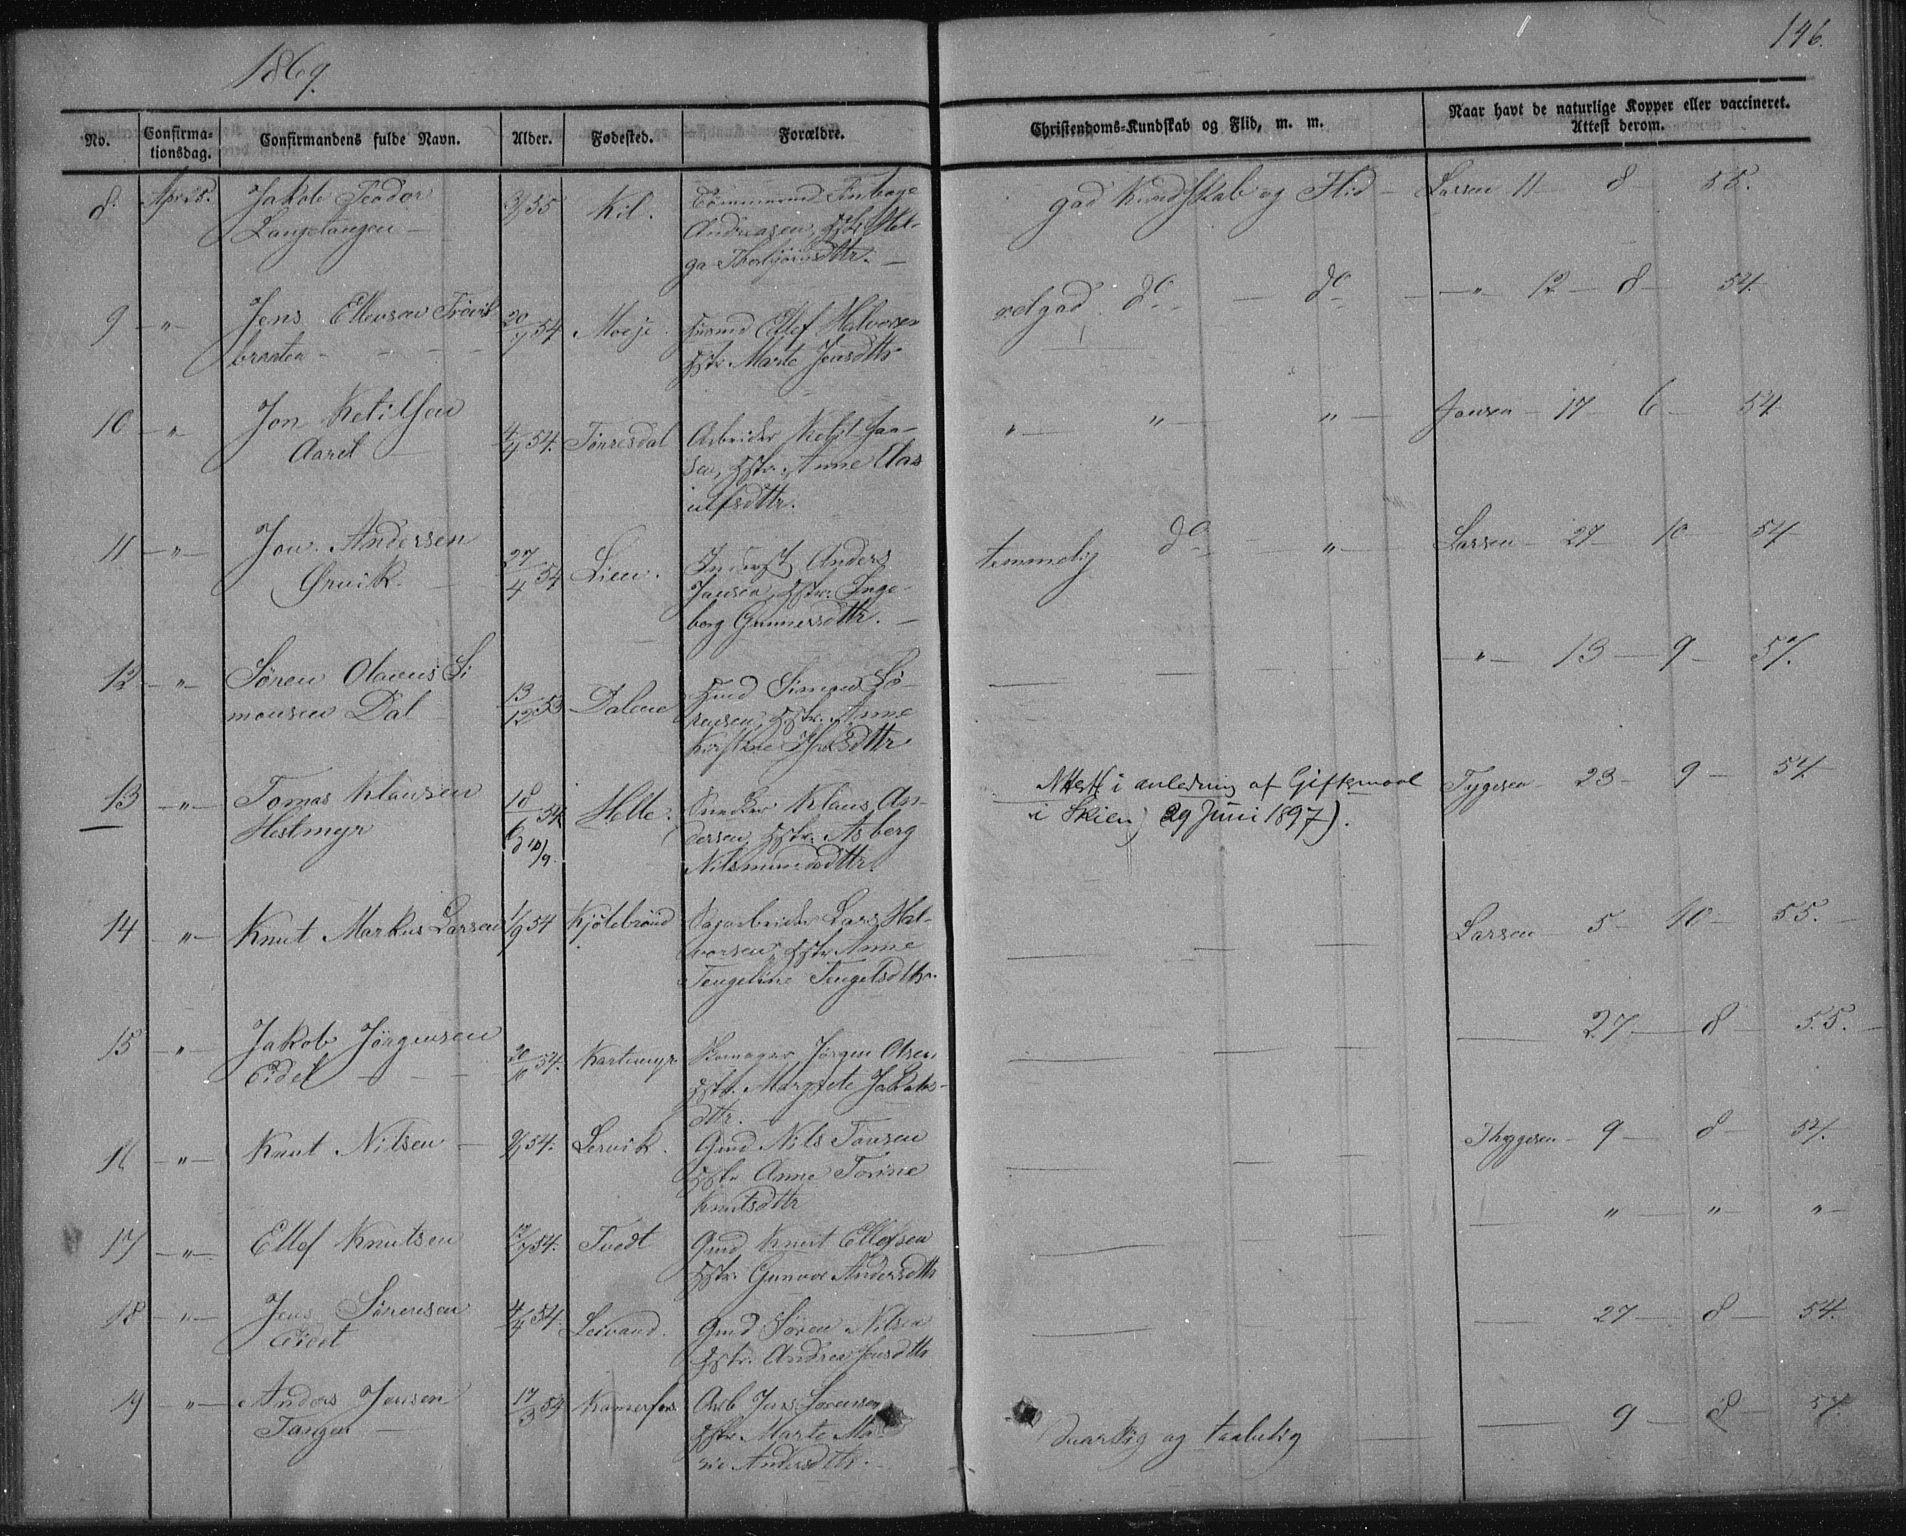 1869.
146.
No. Confirma-tionsdag. Confirmandens fulde Navn. Alder. Fødested. Forældre. Christendoms-Kundskab og Flid, m. m. Naar havt de naturlige Kopper eller vaccineret. Attest derom.
8. Apr 25. Jakob Teodor 3/55 Kil.
Langetangen —
Andreasen, Hstr. Hel-
ga Thorbjørnsdttr. —
god Kundskab og Flid — Larsen 11 — 8 — 55.
9 — " — Jens Ellevsen
braaten - - - 20/7 54 Moeje.
Ellef Halvorsen
Hstr. Marte Jensdttr
vel god. do — do — " — 12 — 8 — 54.
10 — " — Jon Ketilsen
Aaret — 4/4 54. Tørresdal
Arbeider Ketil Jaa-
sen, Hstr. Anne Clas
iulfsdttr.
" — " — " — Jansen — 17 — 6 — 54
11 — " — Jon Andersen
Ørvik. — 27/4 54 Lien.
Inderst Anders
Jansen, Hstr. Inge-
borg Gunnersdttr. —
temmelig do — " — Larsen — 29 — 10 — 54
12 — " — Søren Olavus Si
monsen Dal 13/12 53 Dalene
Hmd Simon Sø-
rensen, Hstr. Anne
Kirstine
— " — 13 — 9 — 54.
13 — " — Tomas Klausen
Hestmyr 18/6 54 Helle.
d 10/9.
Snedker Klaus An-
dersen, Hstr. Asberg
Nilsmundsdttr.
Attest i anledning af Giftermaal
i Skien, 29 Juni 1897).
Tygesen — 23 — 9 — 54
14 — " — Knut Markus Larsen 1/9 54 Kjølebrønd
Sagarbeider Lars Hal-
vorsen, Hstr. Anne
Tengeline Tengelsdttr.
Larsen — 5 — 10 — 55. —
15 — " — Jakob Jørgensen
Eidet — 20/10 54. Kartemyr
Skomager Jørgen Olsen,
Hstr. Margrete Jakobs-
dttr. —
27 — 8 — 55. —
16 — " — Knut Nilsen — 54. Lervik.
Gmd Nils Tonsen
Hstr Anne Torine
Knutsdttr
Thygesen — 9 — 8 — 54.
17 — " — Ellef Knutsen 54. Tvedt
Gmd Knut Ellefsen
Hstr. Gunvor Andersdttr
— " — " — "
18 — " — Jens Sørensen
Eidet 4/4 54. Leivand.
Gmd Søren Nilsen
Hstr. Andrea Jensdttr
— 27 — 8 — 54.
19 — " — Anders Jensen
Tangen — 17/3 54 Kamerfos
Arb Jens Sørensen
Hstr Marte Ma-
rie Andersdttr. —
og taalelig — 9 — 8 — 54.